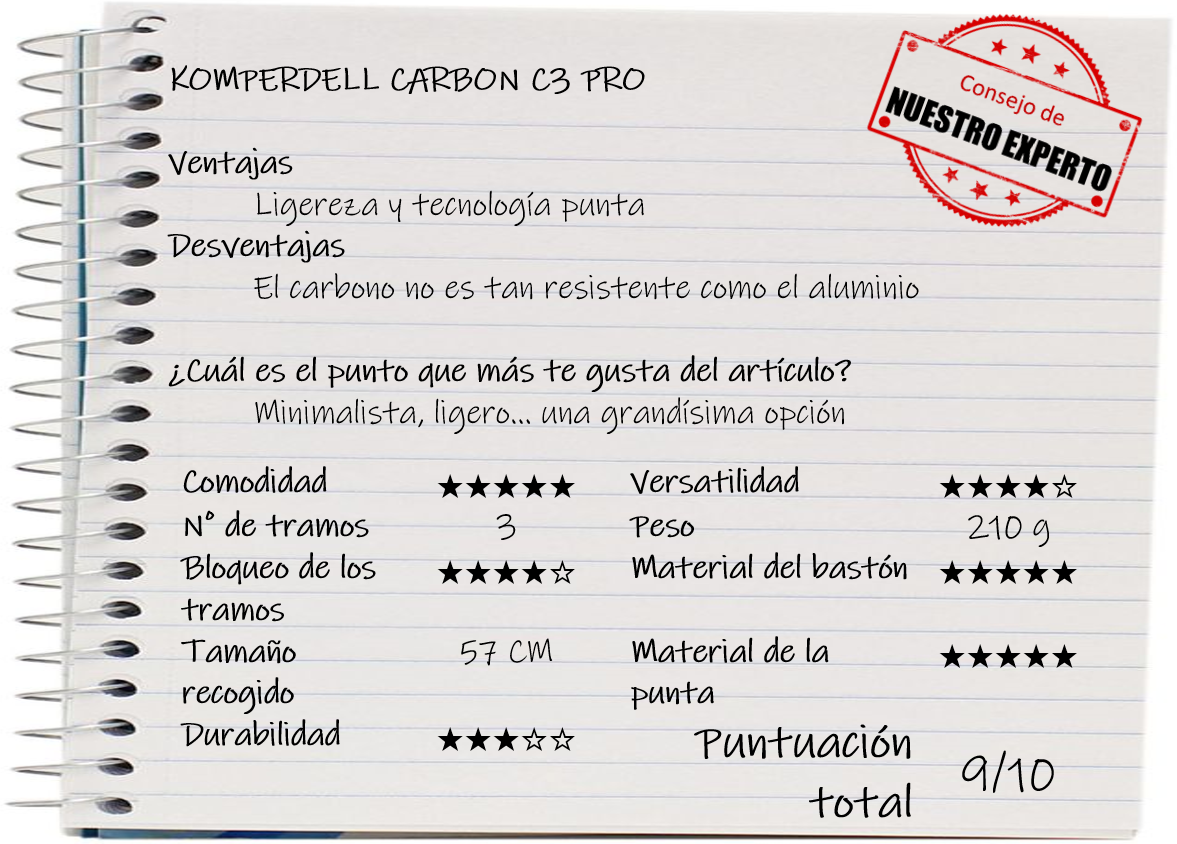 KOMPERDELL CARBON C3 PRO
Consejo de
NUESTRO EXPERTO
Ventajas
Ligereza y tecnología punta
Desventajas
El carbono no es tan resistente como el aluminio
¿Cuál es el punto que más te gusta del artículo?
Minimalista, ligero... una grandísima opción
Comodidad ★★★★★ Versatilidad ★★★★☆
Nº de tramos 3 Peso 210 g
Bloqueo de los ★★★★☆ Material del bastón ★★★★★
tramos
Tamaño 57 CM Material de la ★★★★★
recogido punta
Durabilidad ★★★☆☆ Puntuación
total 9/10